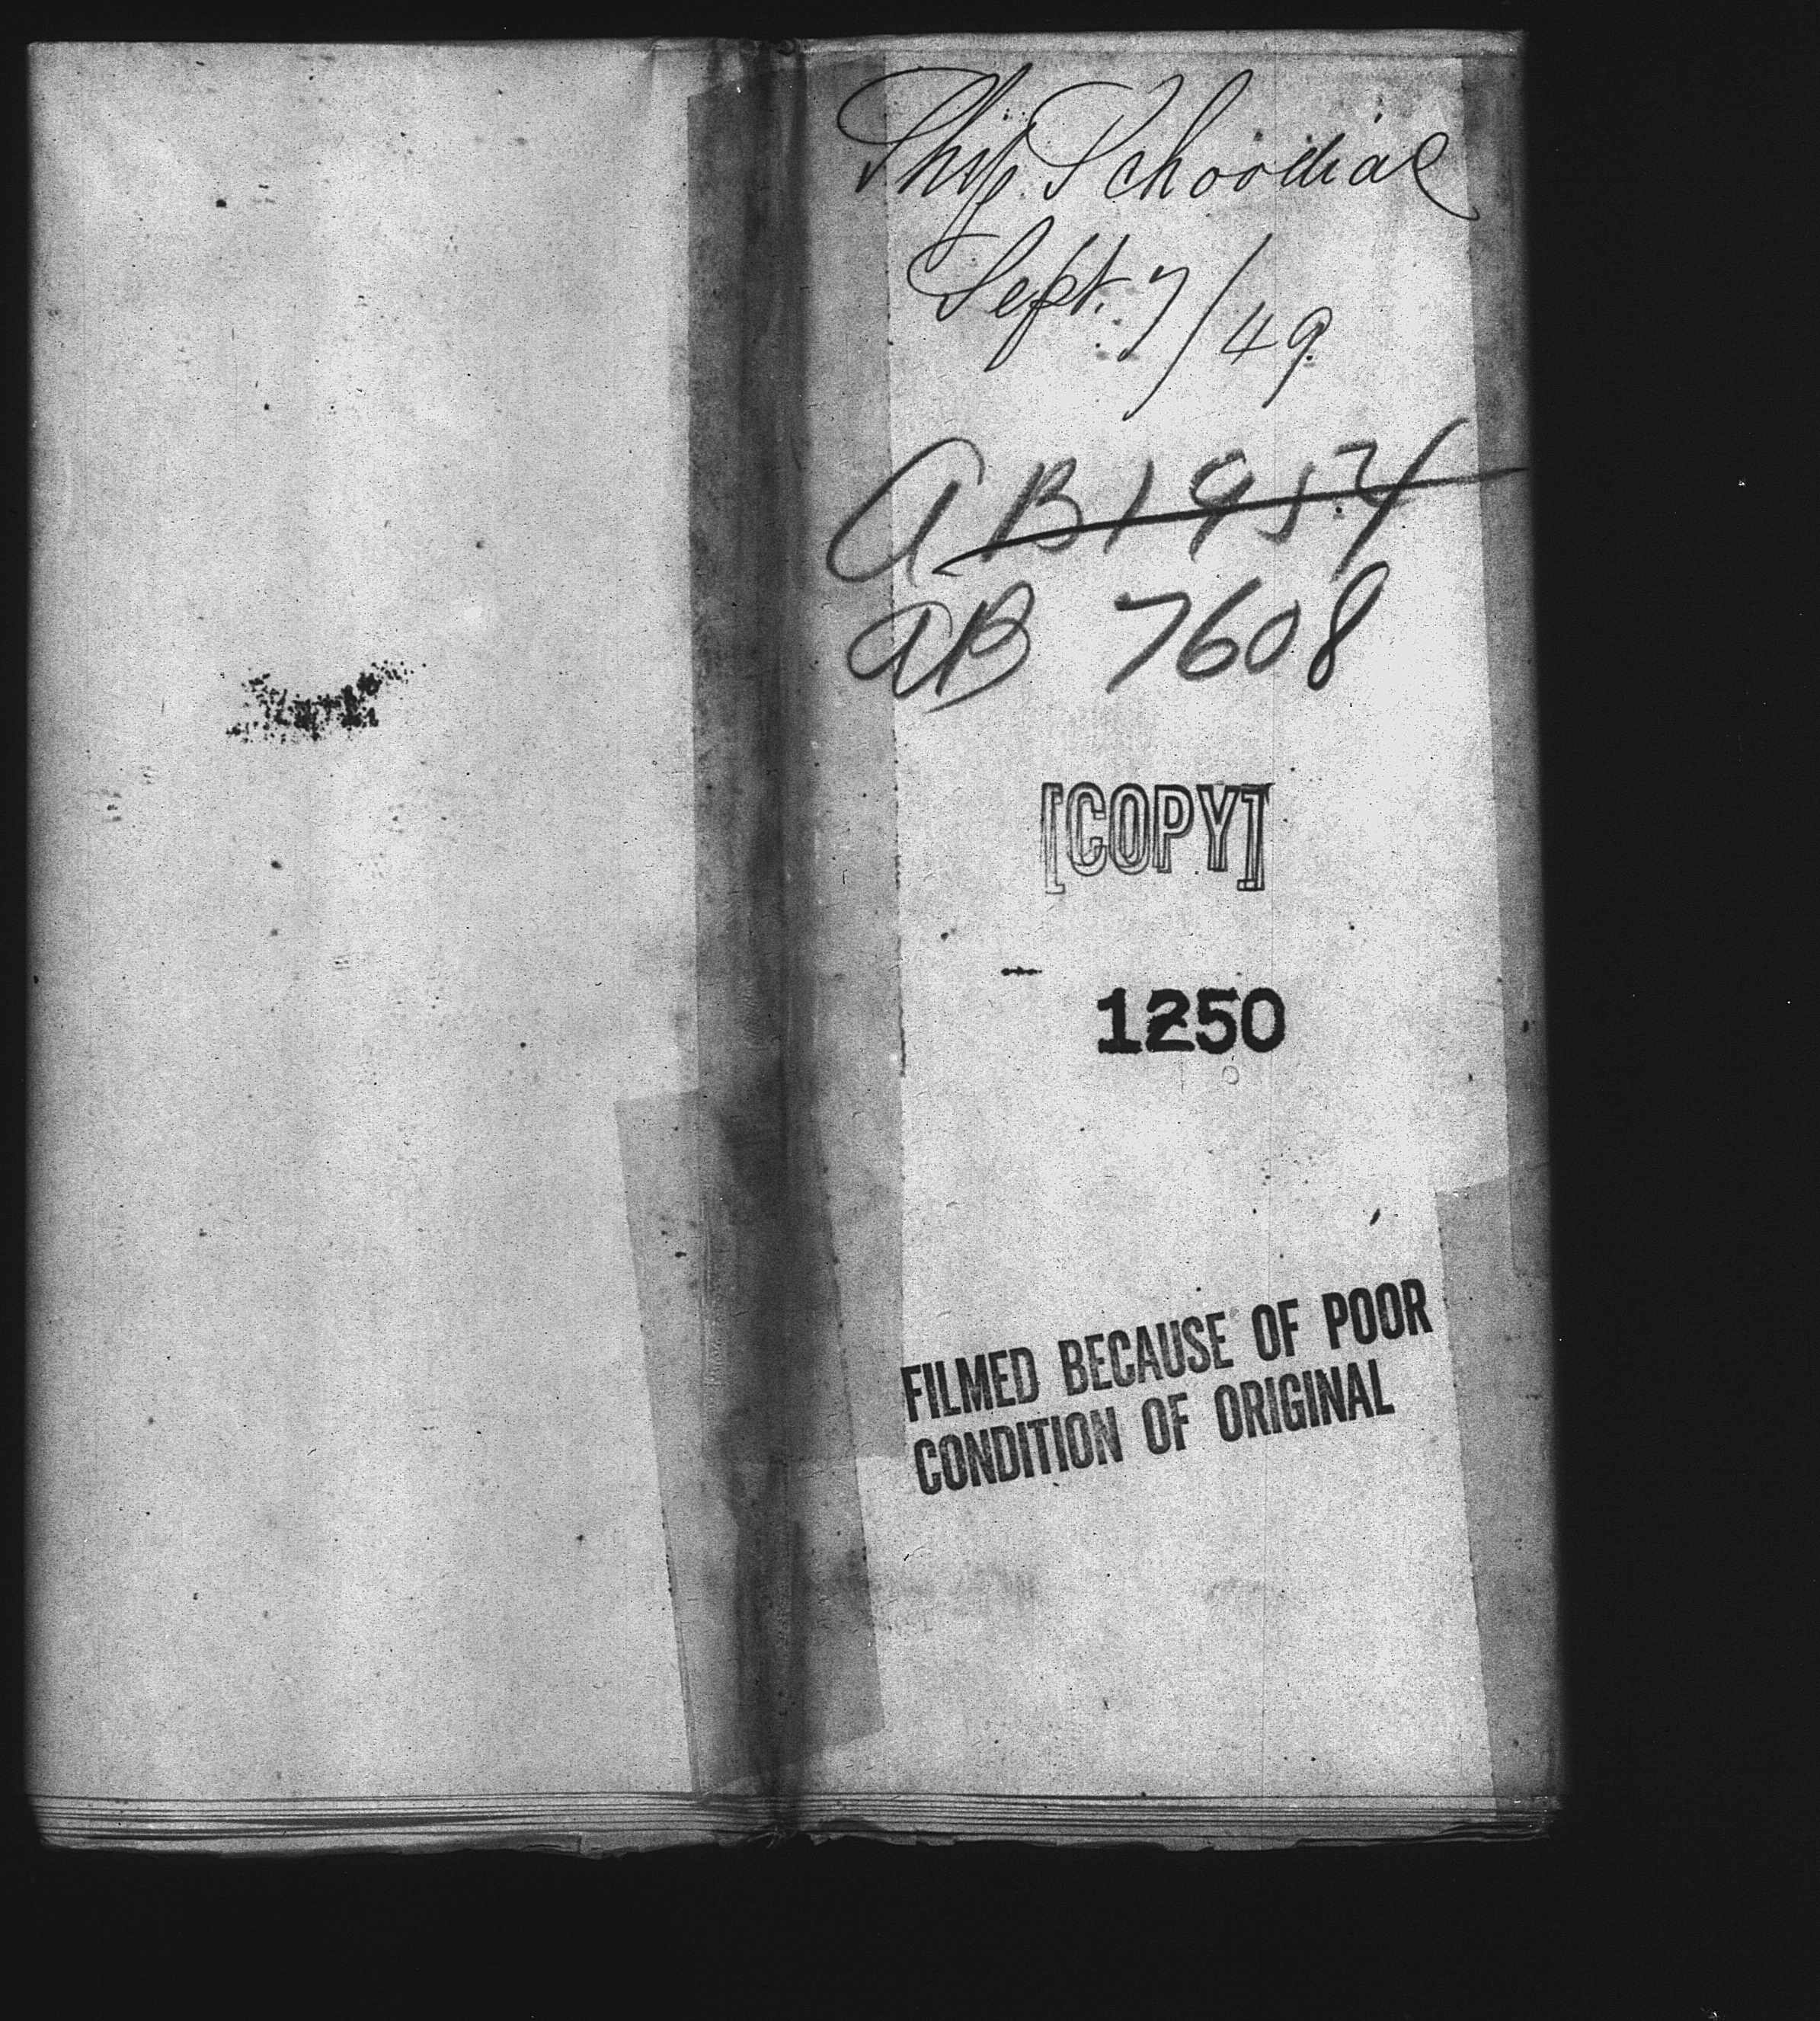 Ship Schoodiac
Sept. 7/49
AB 1954
AB 7608
[COPY]
1250
FILMED BECAUSE OF POOR
CONDITION OF ORIGINAL